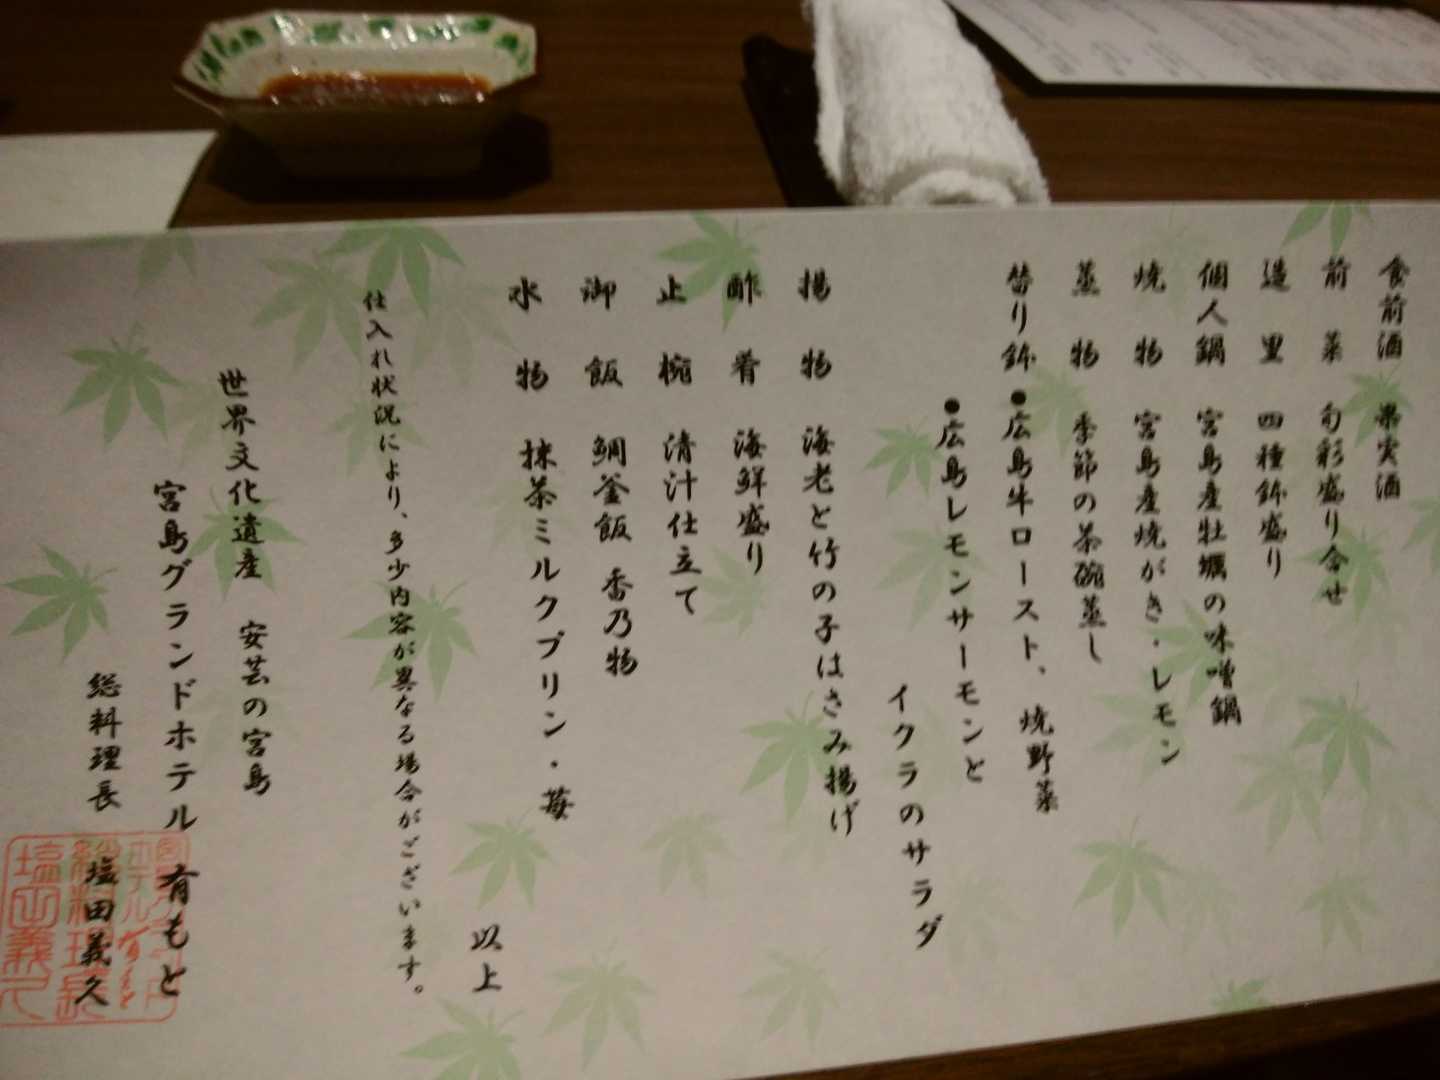 食前酒 果実酒
前菜 旬彩盛り合せ
造里 四種鉢盛り
個人鍋 宮島産牡蠣の味噌鍋
焼物 宮島産焼がき・レモン
蒸物 季節の茶碗蒸し
替り鉢 ●広島牛ロースト、焼野菜
●広島レモンサーモンと
イクラのサラダ
揚物 海老と竹の子はさみ揚げ
酢肴 海鮮盛り
止椀 清汁仕立て
御飯 鯛釜飯 香乃物
水物 抹茶ミルクプリン・苺
以上
仕入れ状況により、多少内容が異なる場合がございます。
世界文化遺産 安芸の宮島
宮島グランドホテル 有もと
総料理長 塩田義久